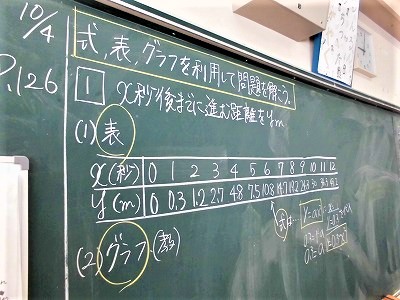 10/4
P.126
式、表、グラフを利用して問題を解こう。
1 x秒後までに進む距離をym
(1) 表
x(秒) 0 1 2 3 4 5 6 7 8 9 10 11 12
y(m) 0 0.3 1.2 2.7 4.8 7.5 10.8 14.7 19.2 24.3 30
式は…
y=ax²
(2) グラフ